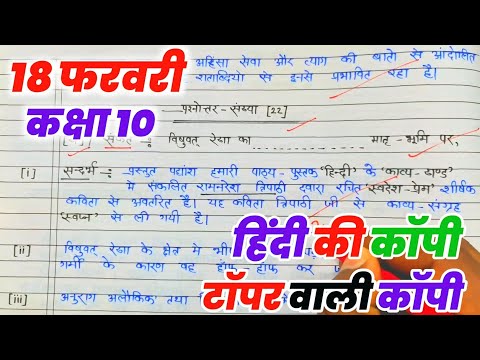 अहिंसा सेवा और त्याग की बातों से आंदोलित
शताब्दियों से इनसे प्रभावित रहा है।
18 फरवरी
प्रश्नोत्तर-संख्या [22]
कक्षा 10
विषुवत् रेखा का मातृ-भूमि पर,
[i] सन्दर्भ :- प्रस्तुत पद्यांश हमारी पाठ्य-पुस्तक 'हिन्दी' के 'काव्य-खण्ड'
में संकलित रामनरेश त्रिपाठी द्वारा रचित 'स्वदेश-प्रेम' शीर्षक
कविता से अवतरित है। यह कविता त्रिपाठी जी के काव्य-संग्रह
'स्वप्न' से ली गयी है।
[ii] विषुवत् रेखा के क्षेत्र में
हिंदी की कॉपी
गर्मी के कारण वह हाँफ-हाँफ कर
टॉपर वाली कॉपी
[iii] अनुराग अलौकिक तथा